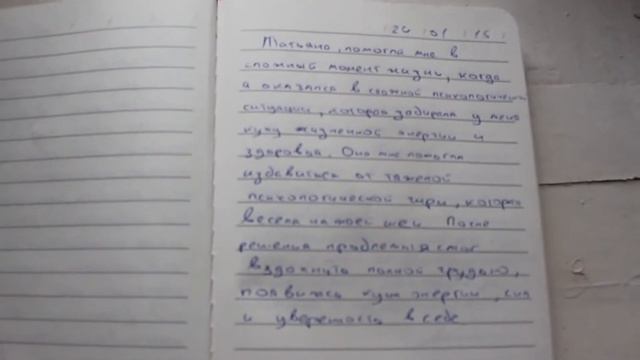 26 01 15
Татьяна, помогла мне в
сложный момент жизни, когда
я оказался в сложной психологической
ситуации, которая забирала у меня
кучу жизненной энергии и
здоровья. Она мне помогла
избавиться от тяжелой
психологической гири, которая
весела на моей шеи После
решения проблемы я стал
вздохнуть полной грудью,
появилась куча энергии, сил
и уверенность в себе